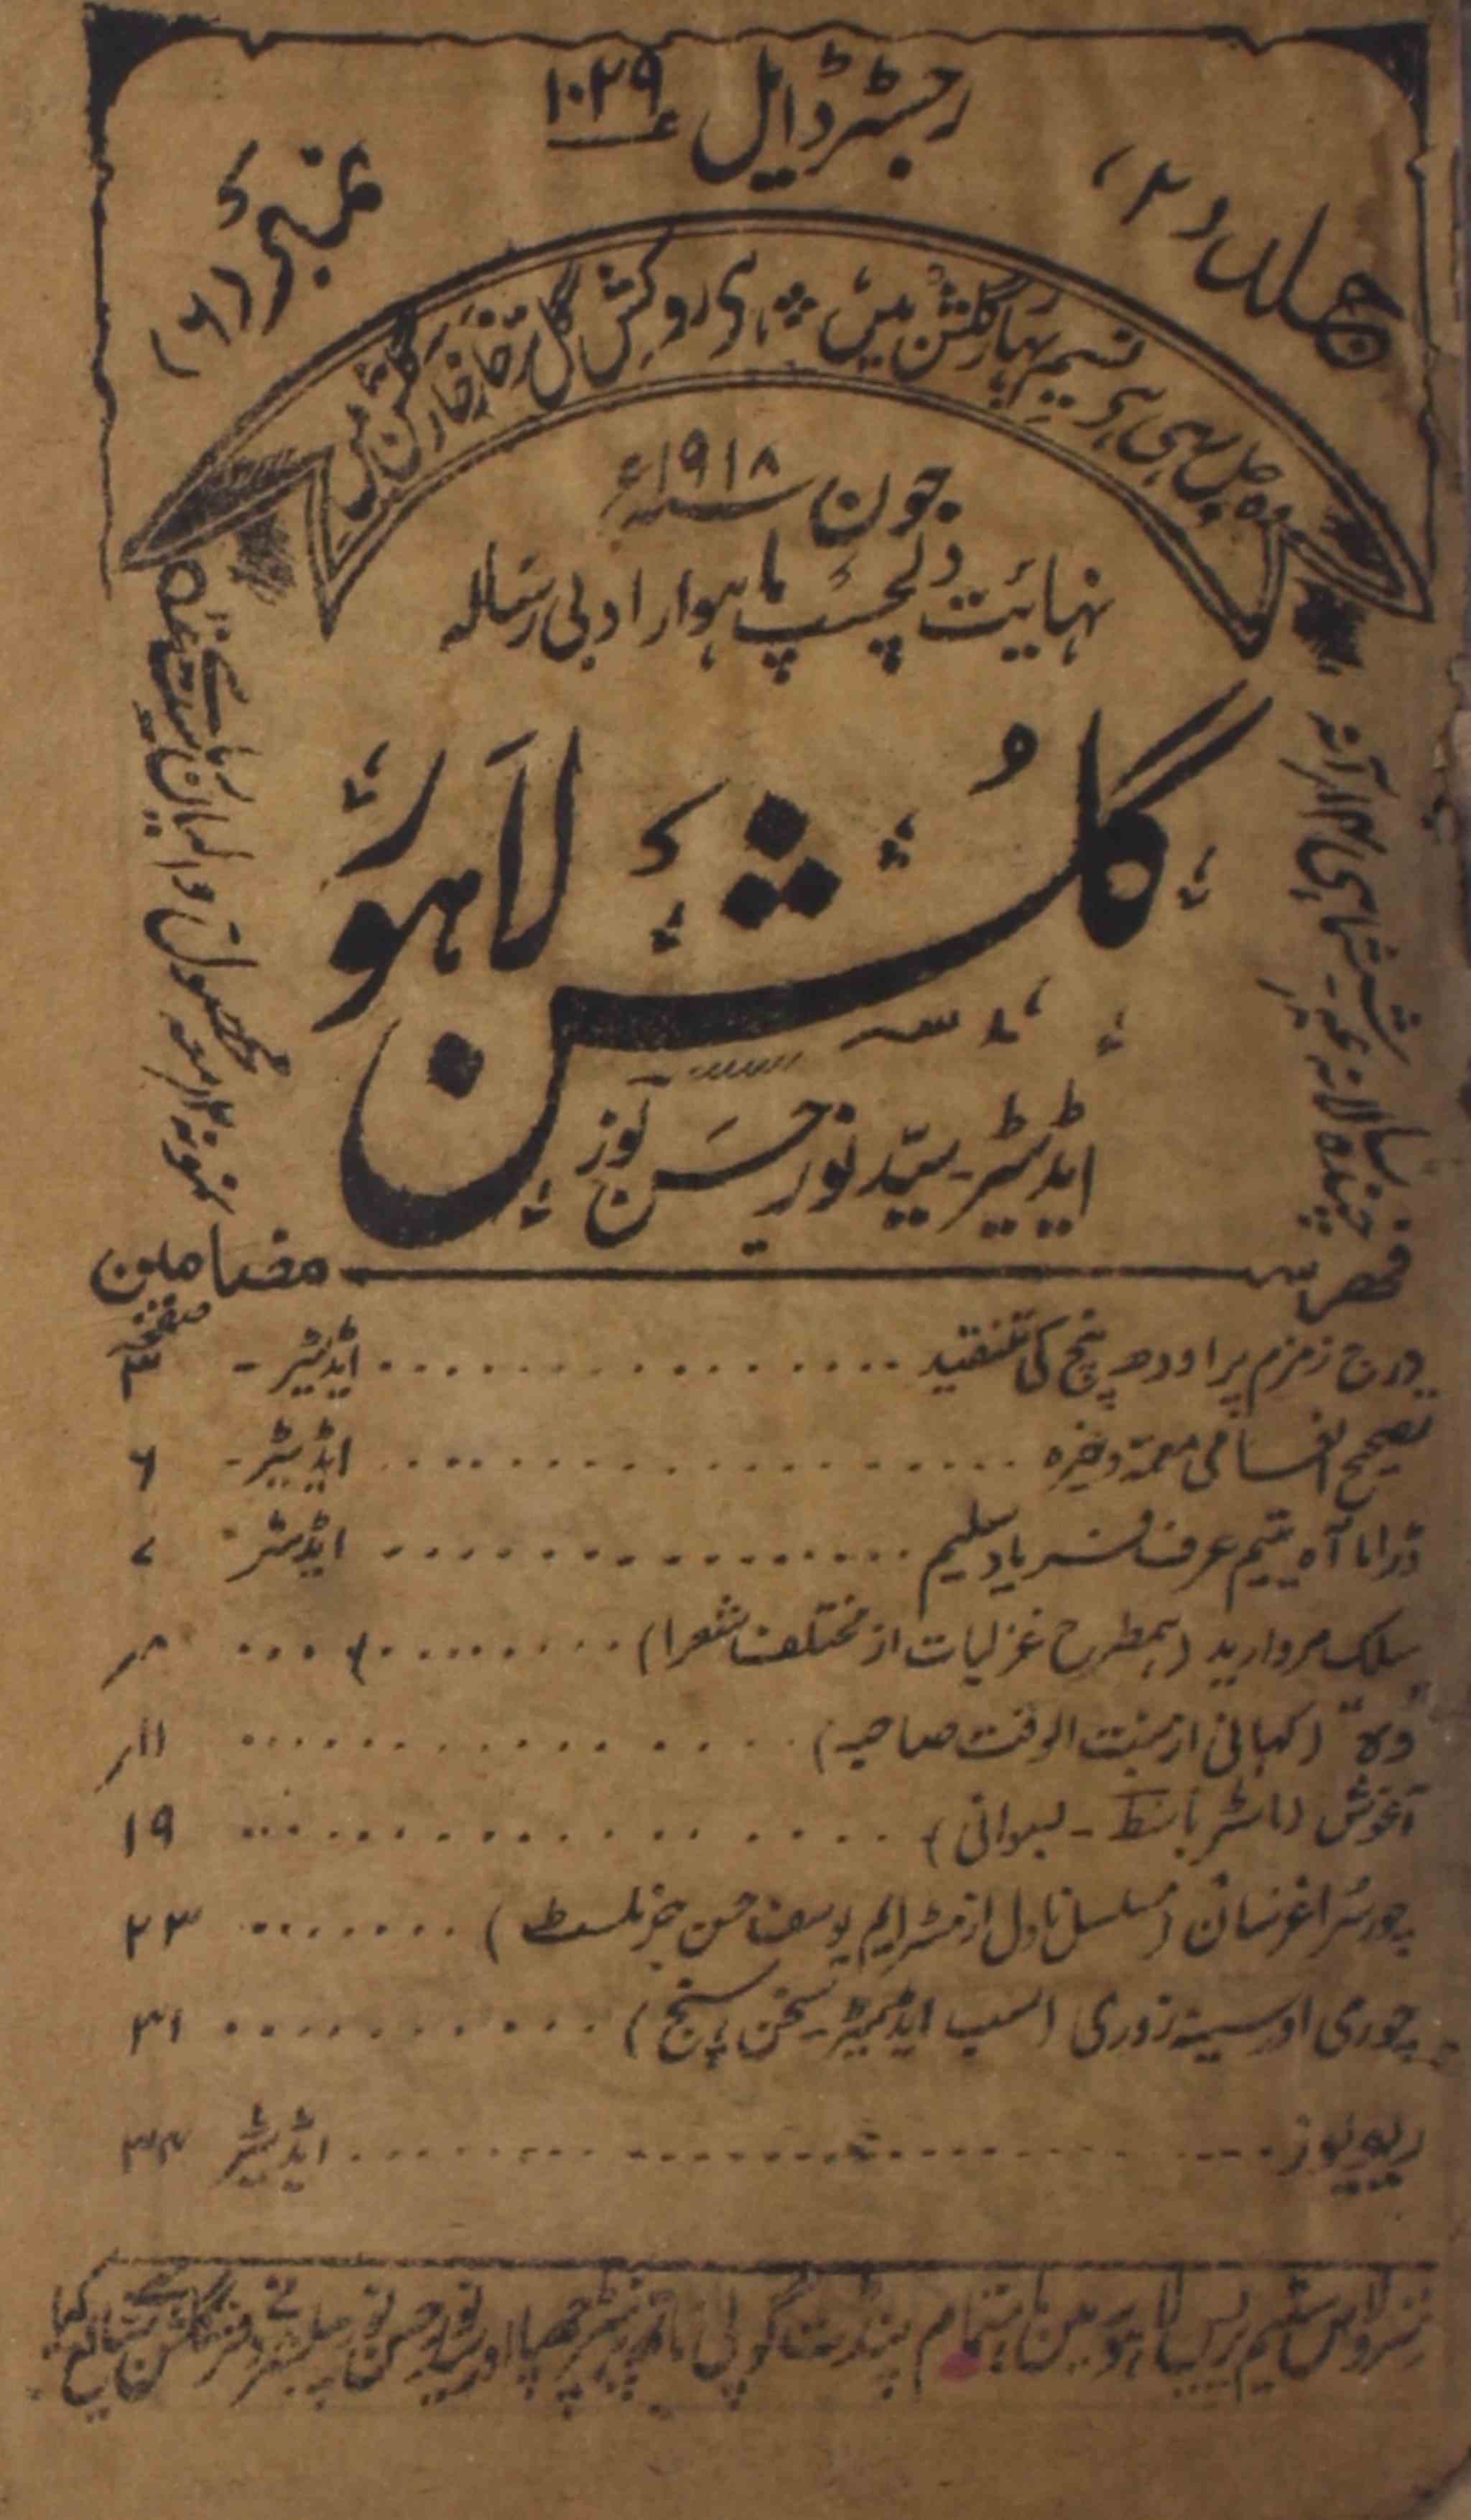 رجسٹرڈ ایل ۱۰۲۹
جلد (۲)
نمبر (۶)
وہ چل رہی ہے نسیم بہار گلشن میں ؞ ہے روکش گل تر خار خار گلشن میں
جون سنہ ۱۹۱۸ء
نہائیت دلچسپ ماہوار ادبی رسالہ
گلشن لاہور
ایڈیٹر۔ سید نور حسن نور
چندہ سالانہ
نمونہ محصول ڈاک
فہرست مضامین
صفحہ
درج زمزم پر اودھ پنچ کی تنقید ........ ایڈیٹر۔ ۳
تصحیح انعامی معمہ وغیرہ ........ ایڈیٹر۔ ۶
ڈراما آہ یتیم عرف فریاد سلیم ........ ایڈیٹر ۷
سلک مروارید (ہمطرح غزلیات از مختلف شعرا) ........ ۸
"وہ" (کہانی از بنت الوقت صاحبہ) ........ ۱۱
آغوش (ماسٹر باسط۔ بسوانی) ........ ۱۹
چور سراغرسان (مسلسل ناول از مسٹر ایم یوسف حسن جرنلسٹ) ........ ۲۳
چوری اور سینہ زوری (سب ایڈیٹر۔ سخن سنج) ........ ۳۱
ریویوز ........ ایڈیٹر ۳۴
سٹیم پریس لاہور میں باہتمام پنڈت گوپی ناتھ پرنٹر چھپا اور سید نور حسن نور پبلشر نے دفتر گلشن سے شائع کیا